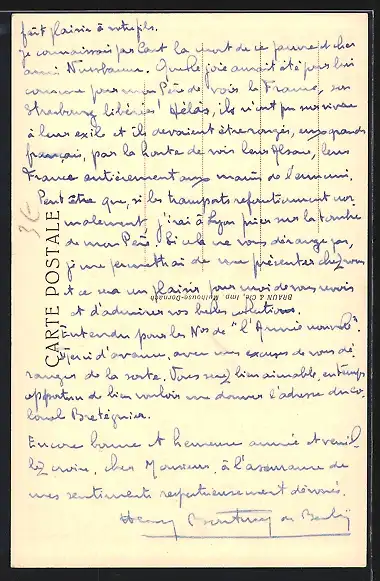 fait plaisir à votre fils.
Je connaissais pas tant la mort de ce pauvre et cher
ami Nussbaum. Quelle joie aurait été pour lui
comme pour mon Père de voir la France, son
Strasbourg libérés! Hélas, ils n'ont pu survivre
à leur exil et ils devaient être rongés, ces grands
français, par la honte de voir leur Alsace, leur
France entièrement aux mains de l'ennemi.
Peut être que, si les transports refonctionnent nor-
malement, j'irai à Lyon prier sur la tombe
de mon Père. Si cela ne vous dérange pas,
je me permettrai de me présenter chez vous
et ce sera un plaisir pour moi de vous revoir
et d'admirer vos belles collections.
Entendu pour les Nos de "l'Année nouvelle".
Merci d'avance, avec mes excuses de vous dé-
ranger de la sorte. Vous serez bien aimable, en temps
opportun de bien vouloir me donner l'adresse du co-
lonel Bretégnier.
Encore bonne et heureuse année et veuil-
lez croire, cher Monsieur, à l'assurance de
mes sentiments respectueusement dévoués.
Henry
CARTE POSTALE
BRAUN & Cie Imp. Mulhouse-Dornach
3€